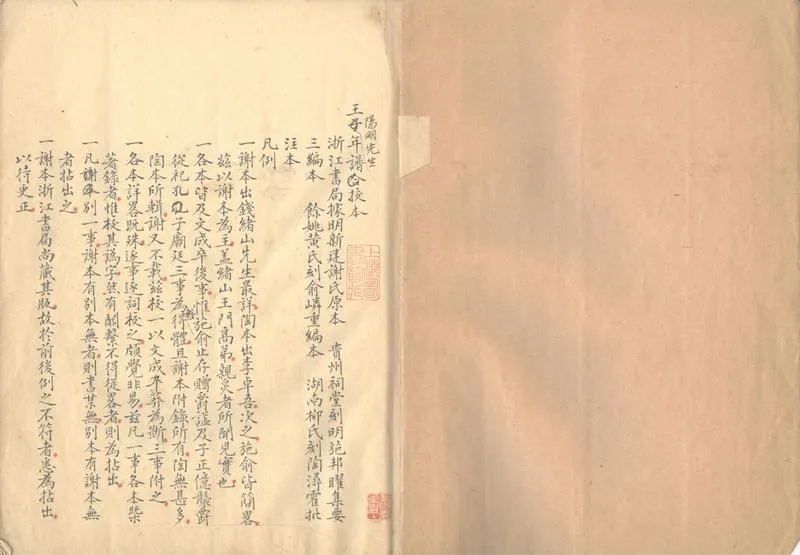 陽明先生
王子年譜合校本
浙江書局據明新建謝氏原本 貴州祠堂刻明施邦曜集要
三編本 餘姚黃氏刻俞嶙重編本 湖南柳氏刻陶潯霍批
注本
凡例
一謝本出錢緒山先生最詳陶本出李卓吾次之施俞皆簡畧
茲以謝本為主蓋緒山王門高弟親炙者所聞見實也
一各本皆及文成卒後事惟施俞止存贈爵謚及子正億襲爵
從祀孔子廟廷三事為得體且謝本附錄所有陶無甚多
陶本所輯謝又不載茲校一以文成卒葬為斷三事附之
一各本詳畧既殊逐事逐詞校之頗覺非易茲凡一事各本槩
著錄者惟校其譌字與有關繫不得從畧者則為拈出
一凡別一事謝本有別本無者則書某無別本有謝本無
者拈出之
一謝本浙江書局尚藏其版故於前後例之不符者悉為拈出
以待更正
上海圖
書館藏